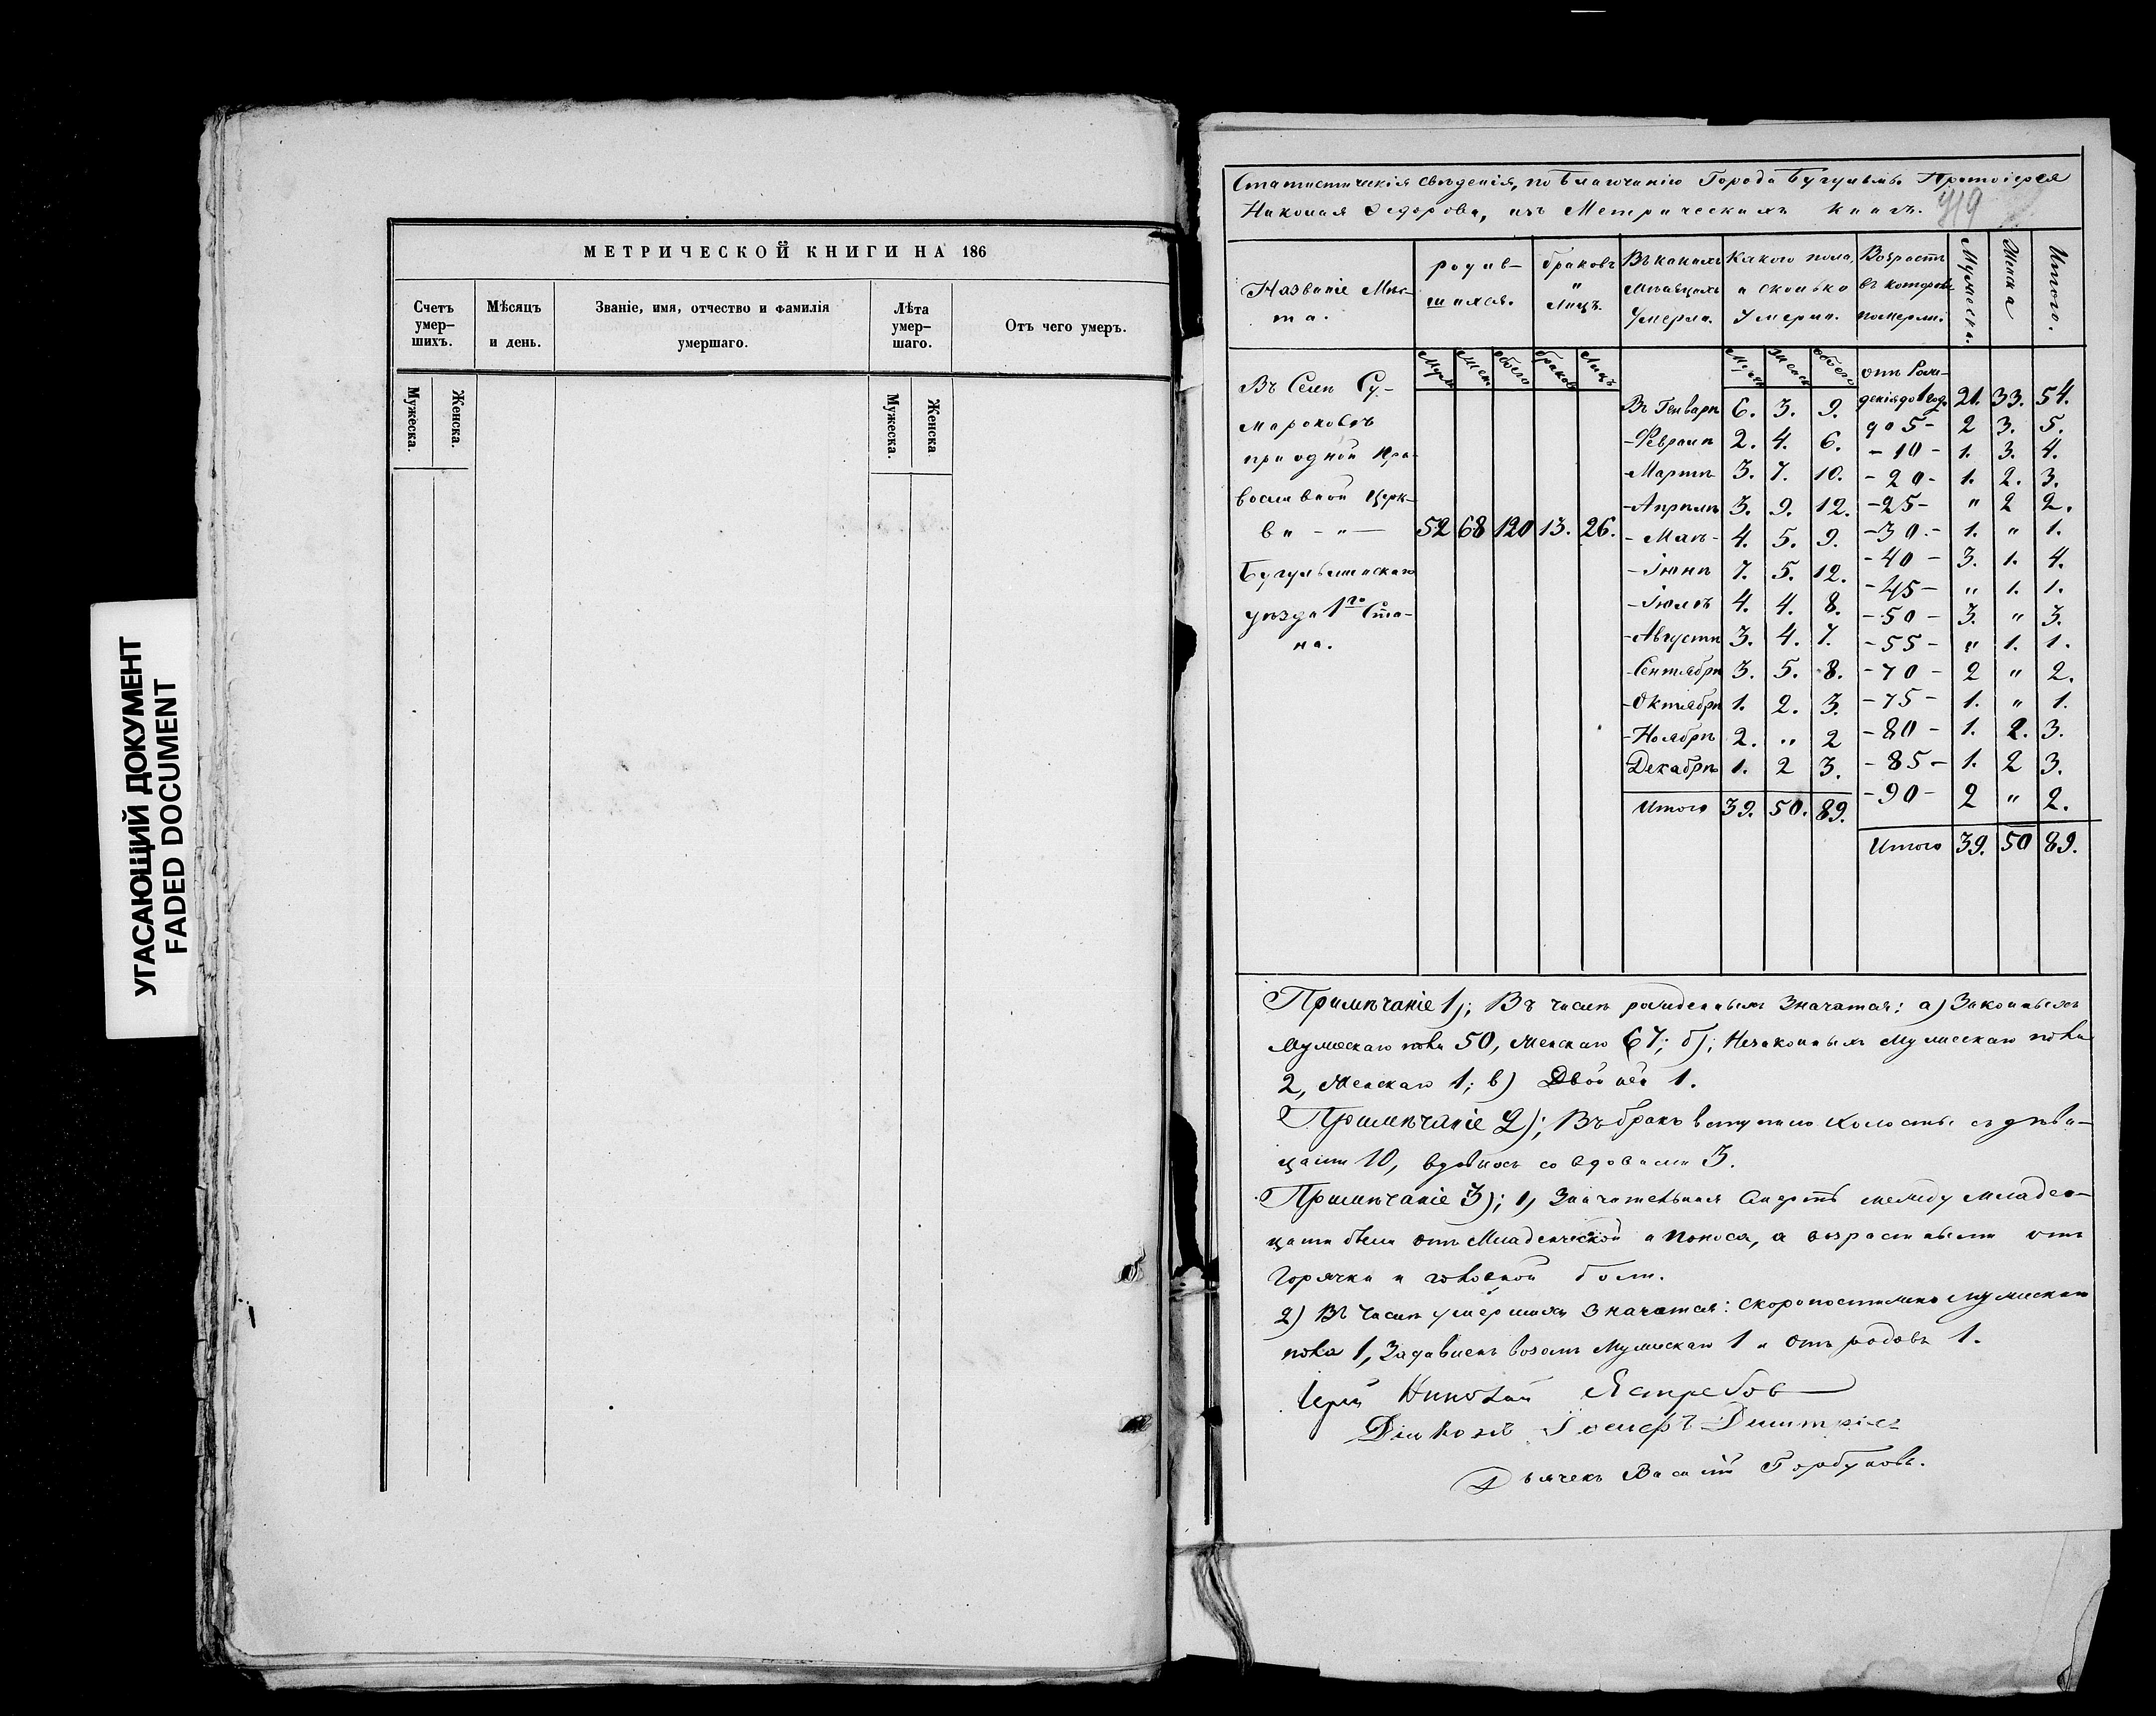 УГАСАЮЩИЙ ДОКУМЕНТ
FADED DOCUMENT
МЕТРИЧЕСКОЙ КНИГИ НА 186
Счетъ умер-шихъ. Мѣсяцъ и день. Званіе, имя, отчество и фамилія умершаго. Лѣта умер-шаго. Отъ чего умеръ.
Мужеска. Женска. Мужеска. Женска
Статистическія свѣденія, по благочинію Города Бугульмы Протоіерея
Николая Федорова, изъ Метрическихъ книгъ.
419
Названіе Мѣс-та. родив-шихся. браковъ и лицъ. Въ какихъ мѣсяцахъ умерли. Какого пола, и сколько умерли. Возрастъ въ которомъ померли. Мужеска. Женска Итого.
Муж Жен обоего браковъ Лицъ Мужск Женск обоего
Въ Селѣ Су-
мароковѣ
при одной Пра-
вославной Церк-
ви - " — 52 68 120 13. 26.
Бугульминскаго
уѣзда 1го Ста-
на.
Въ Генварѣ 6. 3. 9.
-Февралѣ 2. 4. 6.
-Мартѣ 3. 7. 10.
-Апрѣлѣ 3. 9. 12.
-Маѣ- 4. 5. 9.
-Іюнѣ 7. 5. 12.
-Іюлѣ 4. 4. 8.
-Августѣ 3. 4. 7.
-Сентябрѣ 3. 5. 8.
-Октябрѣ 1. 2. 3.
-Ноябрѣ 2. " 2
-Декабрѣ 1. 2 3.
Итого 39. 50. 89.
отъ Рож-
денія до 1 год. 21. 33. 54.
до 5- 2 3. 5.
-10- 1. 3. 4.
-20- 1. 2. 3.
-25- " 2 2.
-30.- 1. " 1.
-40- 3. 1. 4.
-45- " 1. 1.
-50- 3. " 3.
-55- " 1. 1.
-70- 2 " 2.
-75- 1. " 1.
-80- 1. 2. 3.
-85- 1. 2 3.
-90- 2 " 2.
Итого 39. 50 89.
Примѣчаніе 1); Въ числѣ рожденныхъ значатся: а) Законныхъ
Мужескаго пола 50, Женскаго 67; б); Незаконныхъ Мужескаго пола
2, Женскаго 1; в) Двойней 1.
Примѣчаніе 2); Въ бракъ вступило холостые съ дѣви-
цами 10, вдовцовъ со вдовами 3.
Примѣчаніе 3); 1) Значительная Смерть между младен-
цами была отъ Младенческой и поноса, а возрастными отъ
Горячки и головной боли.
2) Въ числѣ умершихъ значатся: скоропостижно мужескаго
пола 1, Задавленъ возомъ Мужескаго 1 и отъ родовъ 1.
Іерей Николай Ястребов
Діаконъ Іосифъ Димитріев
Дьячекъ Василій Горбуновъ.